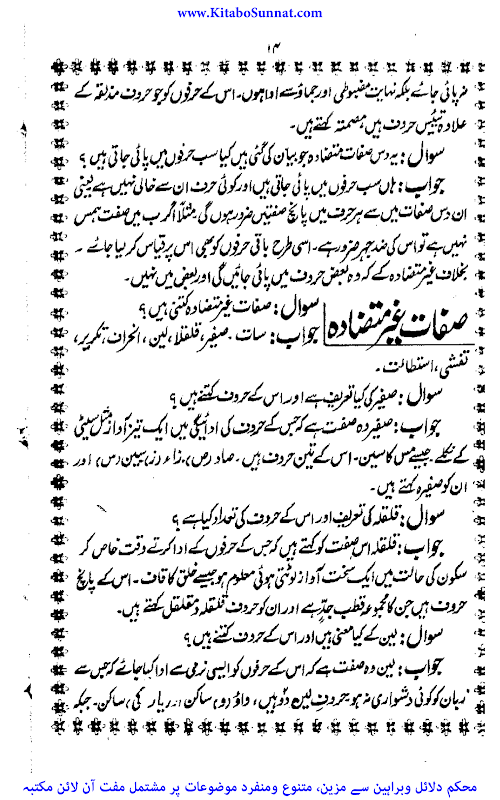 www.KitaboSunnat.com
۱۴
نہ پائی جائے بلکہ نہایت مضبوطی اور جماؤ سے ادا ہوں۔ اس کے حرفوں کو جو حروف مذلقہ کے
علاوہ تیئیس حروف ہیں مصمتہ کہتے ہیں۔
سوال: یہ دس صفات متضادہ جو بیان کی گئی ہیں کیا سب حرفوں میں پائی جاتی ہیں ؟
جواب: ہاں سب حرفوں میں پائی جاتی ہیں اور کوئی حرف ان سے خالی نہیں ہے یعنی
ان دس صفات میں سے ہر حرف میں پانچ صفتیں ضرور ہوں گی مثلاً اگر ب میں صفت ہمس
نہیں ہے تو اس کی ضد جہر ضرور ہے۔ اسی طرح باقی حرفوں کو بھی اس پر قیاس کر لیا جائے۔
بخلاف غیر متضادہ کے کہ وہ بعض حروف میں پائی جائیں گی اور بعض میں نہیں۔
صفات غیر متضادہ
سوال: صفات غیر متضادہ کتنی ہیں؟
جواب: سات۔ صفیر، قلقلا، لین، انحراف، تکریر،
تفشی، استطالت۔
سوال: صفیر کی کیا تعریف ہے اور اس کے حروف کتنے ہیں ؟
جواب: صفیر وہ صفت ہے کہ جس کے حروف کی ادائیگی میں ایک تیز آواز مثل سیٹی
کے نکلے جیسے مس کا سین۔ اس کے تین حروف ہیں۔ صاد (ص)، زاء (ز)، سین (س) اور
ان کو صفیرہ کہتے ہیں۔
سوال: قلقلہ کی تعریف اور اس کے حروف کی تعداد کیا ہے ؟
جواب: قلقلہ اس صفت کو کہتے ہیں کہ جس کے حرفوں کے ادا کرتے وقت خاص کر
سکون کی حالت میں ایک سخت آواز لوٹتی ہوئی معلوم ہو جیسے خلق کا قاف۔ اس کے پانچ
حروف ہیں جن کا مجموعہ قطب جد ہے اور ان کو حروف قلقلہ و متقلقل کہتے ہیں۔
سوال: لین کے کیا معنی ہیں اور اس کے حروف کتنے ہیں؟
جواب: لین وہ صفت ہے کہ اس کے حرفوں کو ایسی نرمی سے ادا کیا جائے کہ جس سے
زبان کو کوئی دشواری نہ ہو حروف لین دو ہیں، واؤ (و) ساکن اور یاء (ی) ساکن۔ جبکہ
محکم دلائل وبراہین سے مزین، متنوع ومنفرد موضوعات پر مشتمل مفت آن لائن مکتبہ